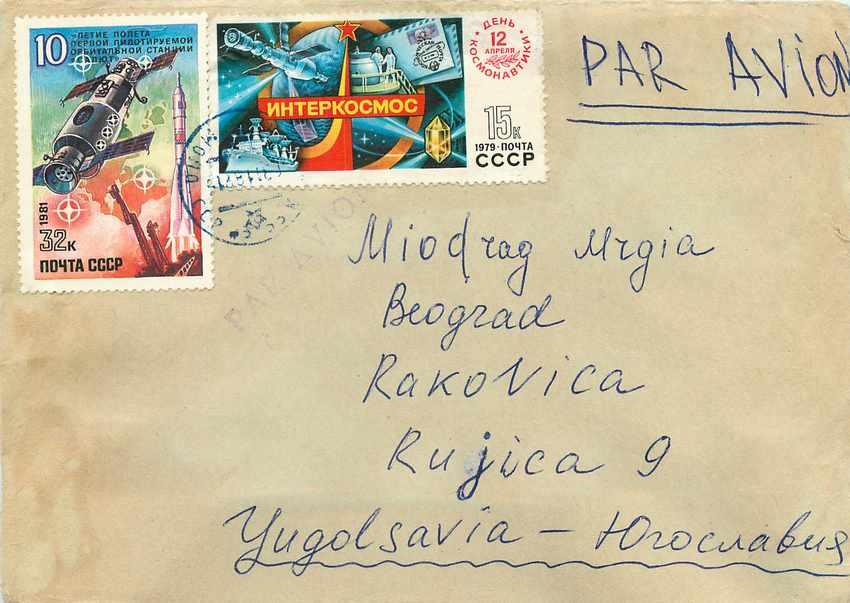 10
-ЛЕТИЕ ПОЛЕТА
ПЕРВОЙ ПИЛОТИРУЕМОЙ
ОРБИТАЛЬНОЙ СТАНЦИИ
1981
32к
ПОЧТА СССР
ИНТЕРКОСМОС
ДЕНЬ
12
АПРЕЛЯ
КОСМОНАВТИКИ
15к
1979·ПОЧТА
СССР
PAR AVION
PAR AVION
Miodrag Mrgia
Beograd
Rakovica
Rujica 9
Yugolsavia – Югославия